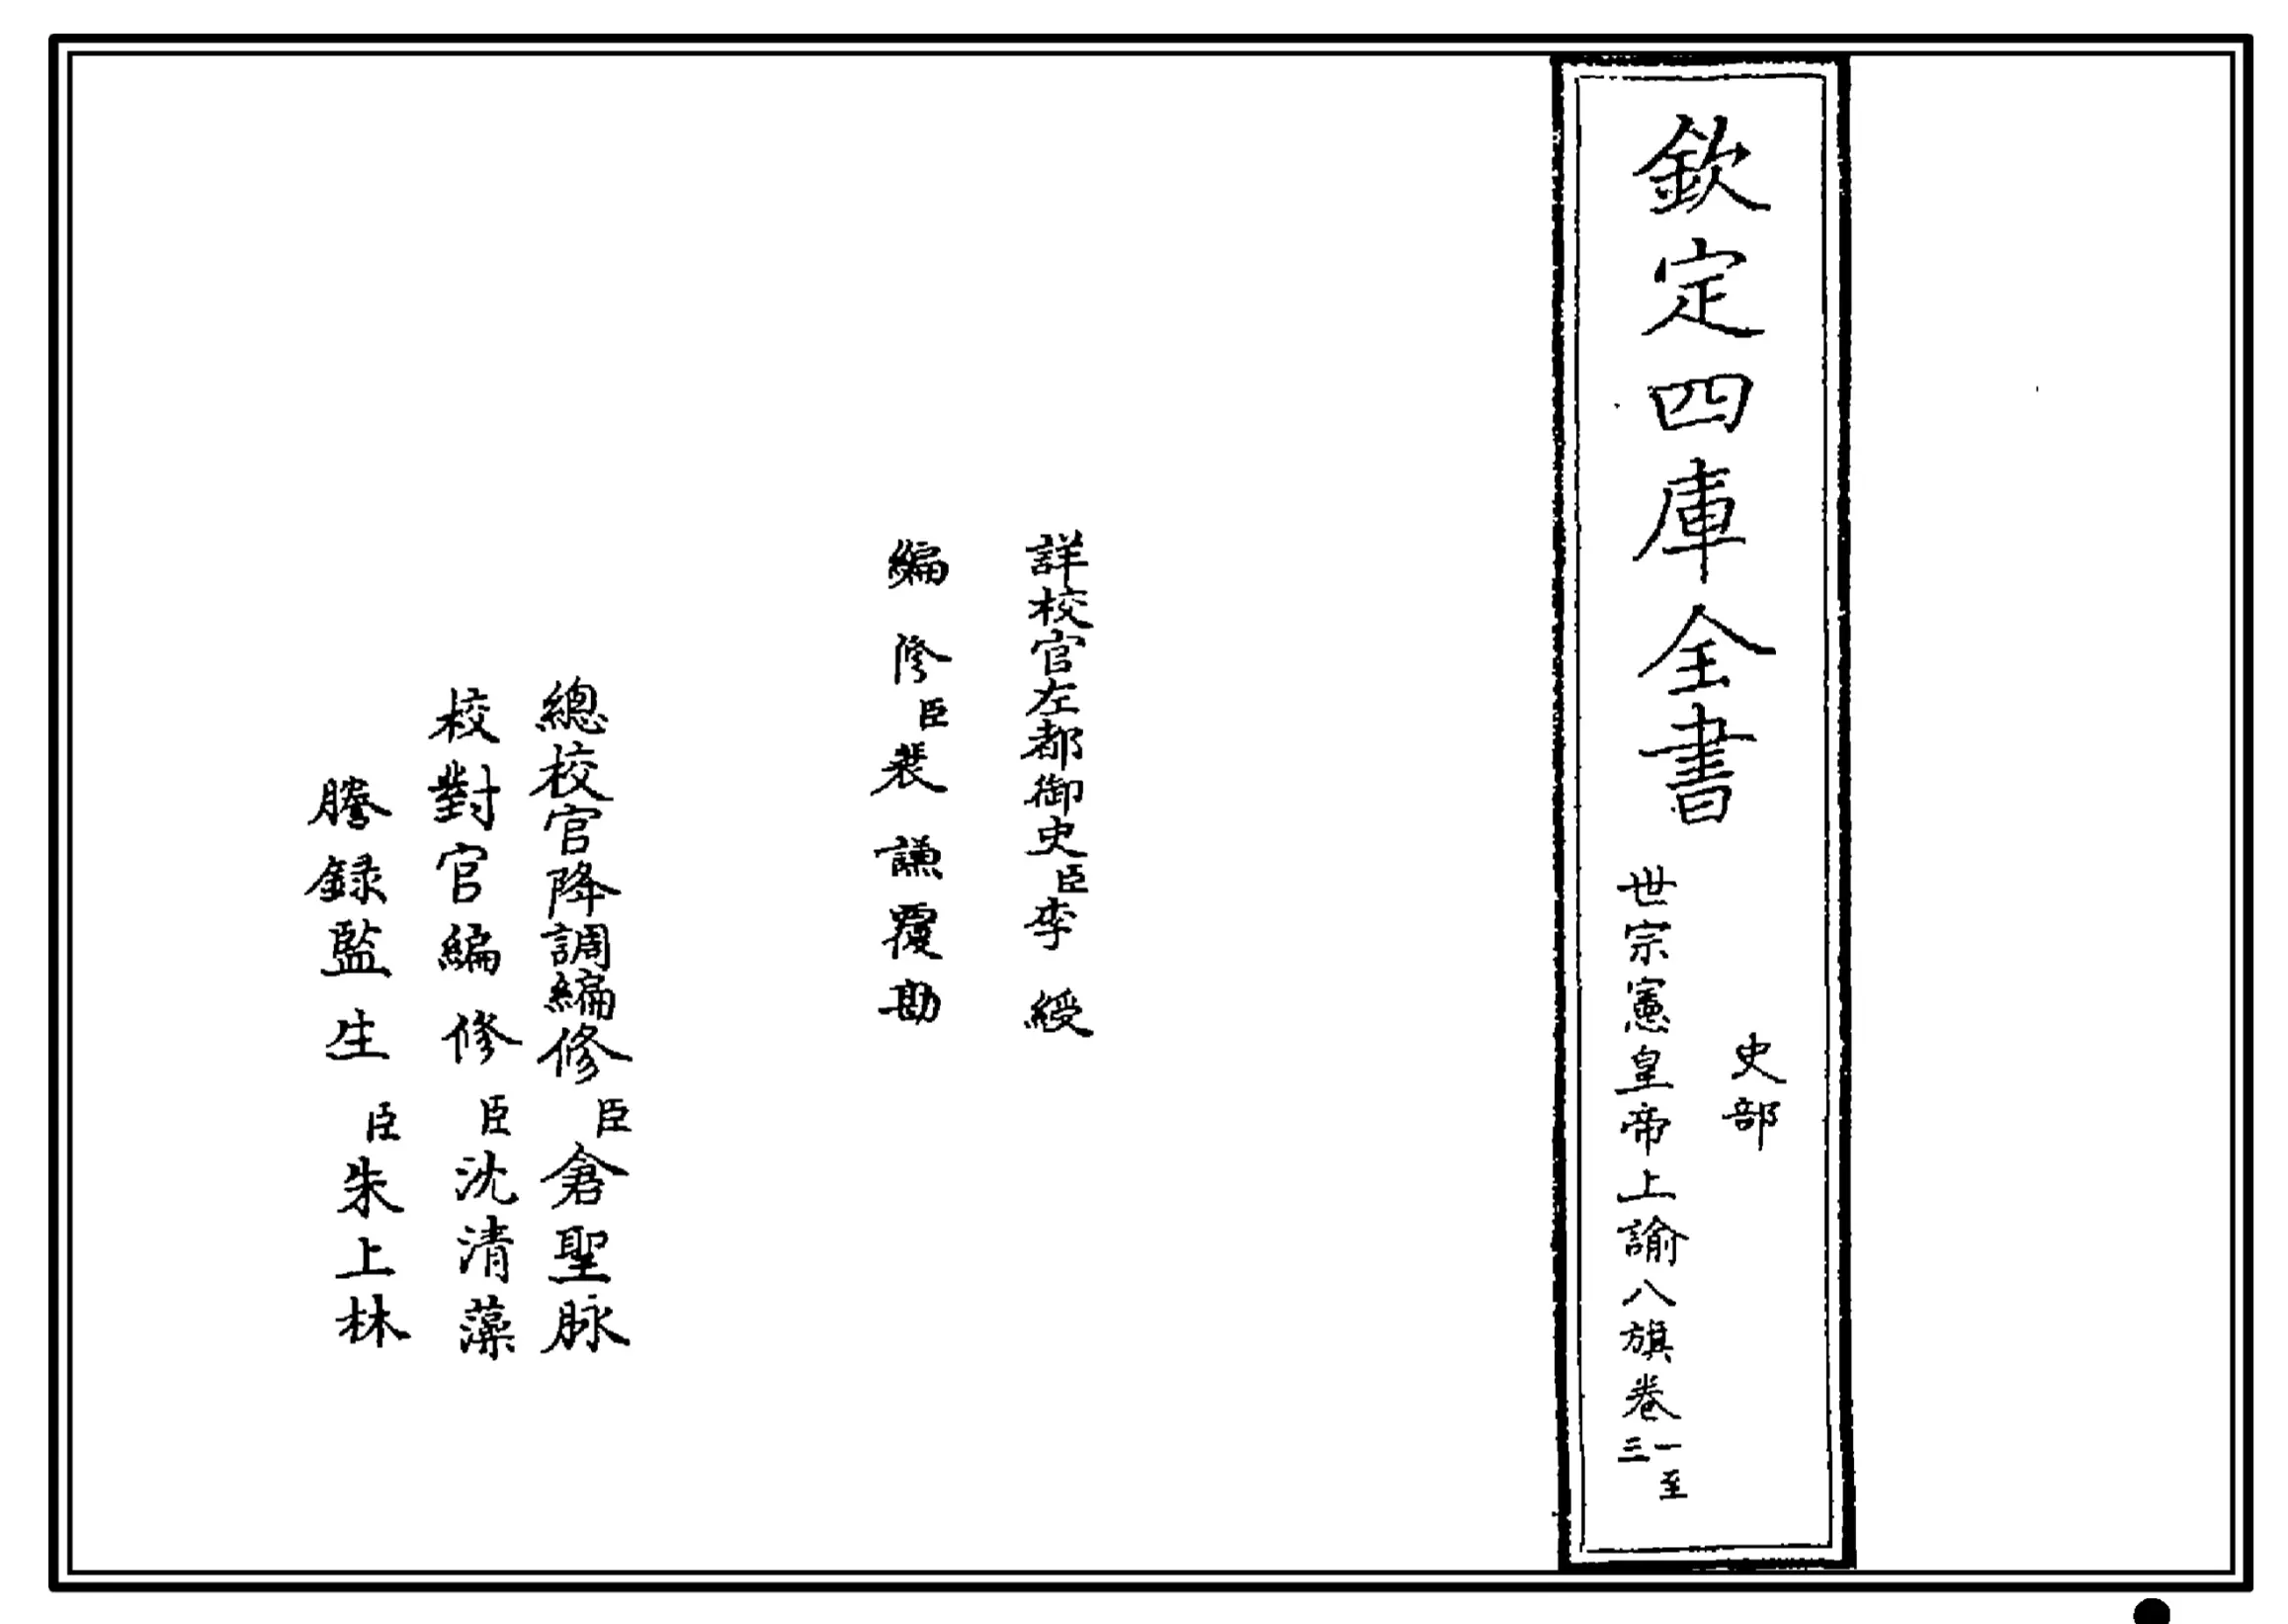 欽定四庫全書
史部
世宗憲皇帝上諭八旗卷一至三
詳校官左都御史臣李綬
編修臣裴謙覆勘
總校官降調編修臣倉聖脉
校對官編修臣沈清藻
謄録監生臣朱上林